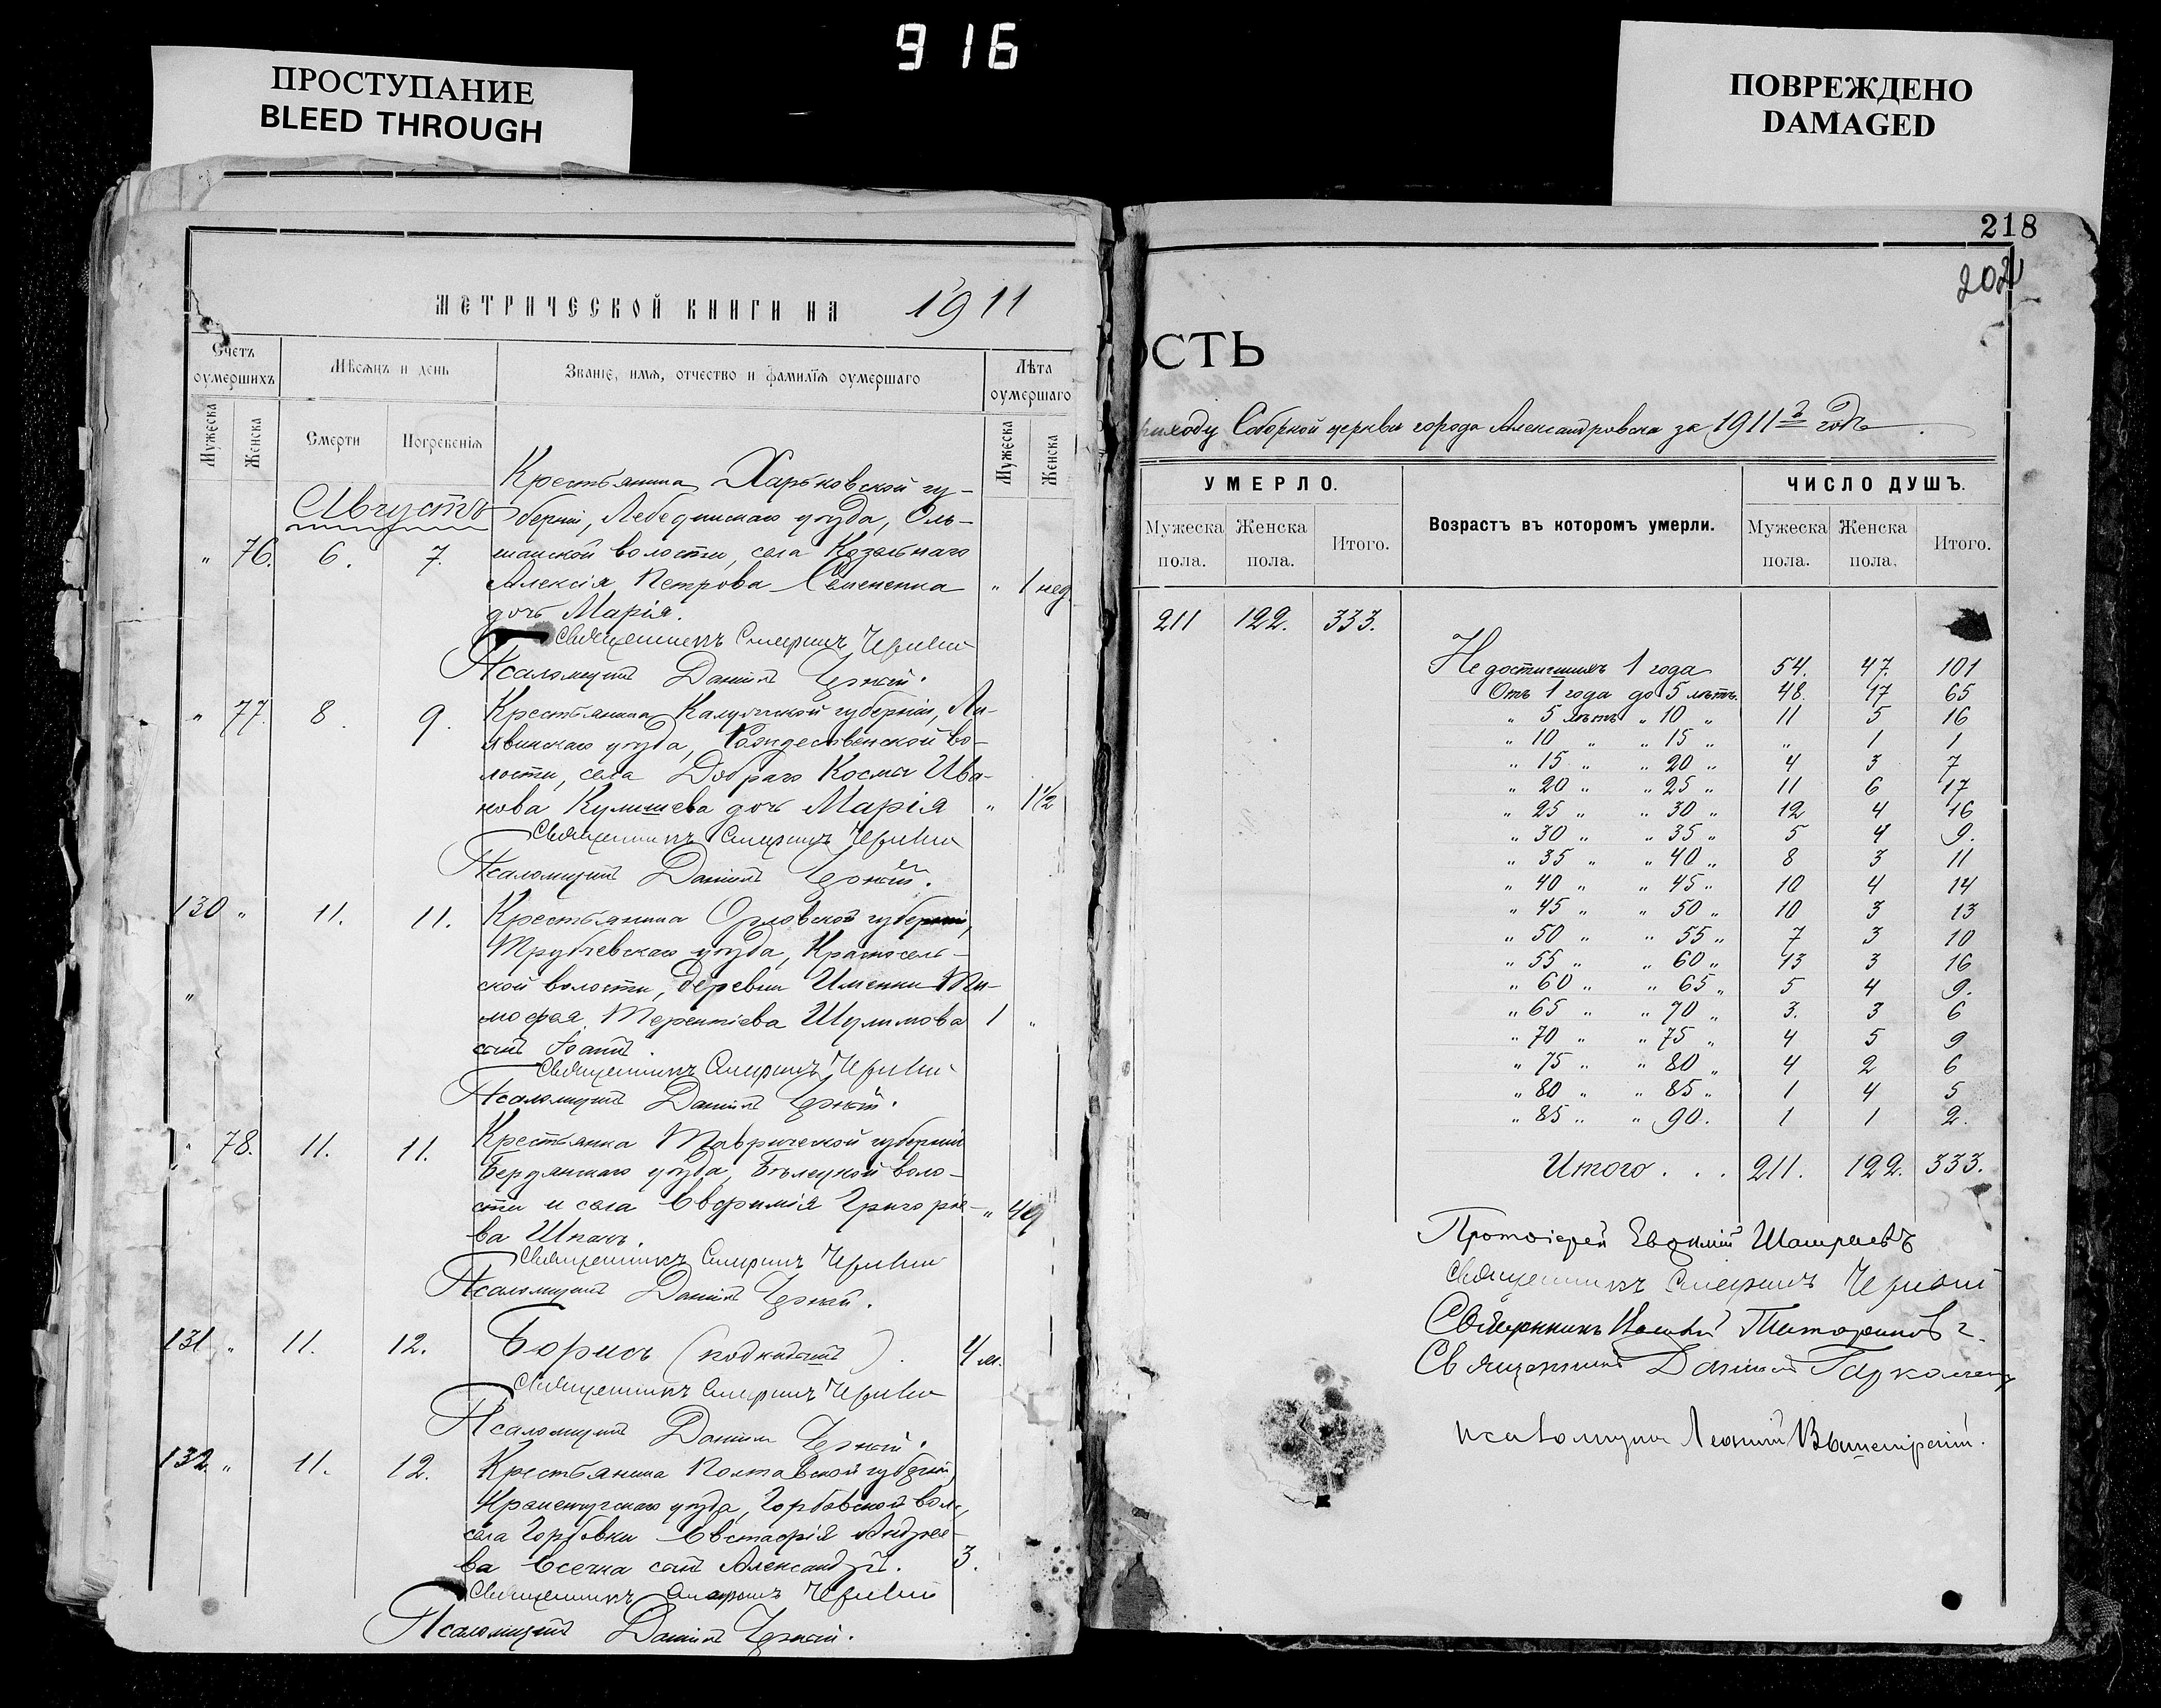 916
ПРОСТУПАНИЕ
BLEED THROUGH
ПОВРЕЖДЕНО
DAMAGED
МЕТРИЧЕСКОЙ КНИГИ НА 1911
Счетъ оумершихъ
Мѣсяцъ и день
Званіе, имя, отчество и фамилія оумершаго
Лѣта оумершаго
Мужеска Женска Смерти Погребенія Мужеска Женска
Августъ
Крестьянина Харьковской гу-
берніи, Лебединскаго уѣзда, Оль-
" 76. 6. 7. шанской волости, села Козельнаго
Алексія Петрова Семененка " 1 нед
дочь Марія.
Священникъ
Псаломщикъ Даніилъ
" 77. 8. 9. Крестьянина Калужской губерніи,
уѣзда, Рождественской во-
лости, села Добраго Космы Ива-
нова Кулишева дочь Марія " 1 1/2
Священникъ
Псаломщикъ Даніилъ
130 " 11. 11. Крестьянина Орловской губерніи,
Трубчевскаго уѣзда, Красносель-
ской волости, деревни Ти-
мофея Терентіева Шулимова 1 "
сынъ Іоаннъ.
Священникъ
Псаломщикъ Даніилъ
" 78. 11. 11. Крестьянка Таврической губерніи
Бердянскаго уѣзда, воло-
сти и села Евфимія Григорье- " 49
ва Шпакъ.
Священникъ
Псаломщикъ Даніилъ
131 " 11. 12. Борисъ (подкидышъ). 4 м.
Священникъ
Псаломщикъ Даніилъ
132 " 11. 12. Крестьянина Полтавской губерніи,
уѣзда, Горбовской вол.,
села Горбовки Евстафія Андрее-
ва сынъ Александръ. 3.
Священникъ
Псаломщикъ Даніилъ
218
202
ОСТЬ
приходу Соборной церкви города Александровска за 1911 й годъ.
УМЕРЛО. Возрастъ въ которомъ умерли. ЧИСЛО ДУШЪ.
Мужеска пола. Женска пола. Итого. Мужеска пола. Женска пола. Итого.
211 122. 333.
Недостигшихъ 1 года 54. 47. 101
Отъ 1 года до 5 лѣтъ. 48. 17 65
" 5 лѣтъ " 10 " 11 5 16
" 10 " " 15 " " 1 1
" 15 " " 20 " 4 3 7
" 20 " " 25 " 11 6 17
" 25 " " 30 " 12 4 16
" 30 " " 35 " 5 4 9.
" 35 " " 40 " 8 3 11
" 40 " " 45 " 10 4 14
" 45 " " 50 " 10 3 13
" 50 " " 55 " 7 3 10
" 55 " " 60 " 13 3 16
" 60 " " 65 " 5 4 9.
" 65 " " 70 " 3. 3 6
" 70 " " 75 " 4 5 9
" 75 " " 80 " 4 2 6
" 80 " " 85 " 1 4 5
" 85 " " 90. 1 1 2.
Итого . . . 211. 122. 333.
Протоіерей
Священникъ
Священникъ
Священникъ Даніилъ